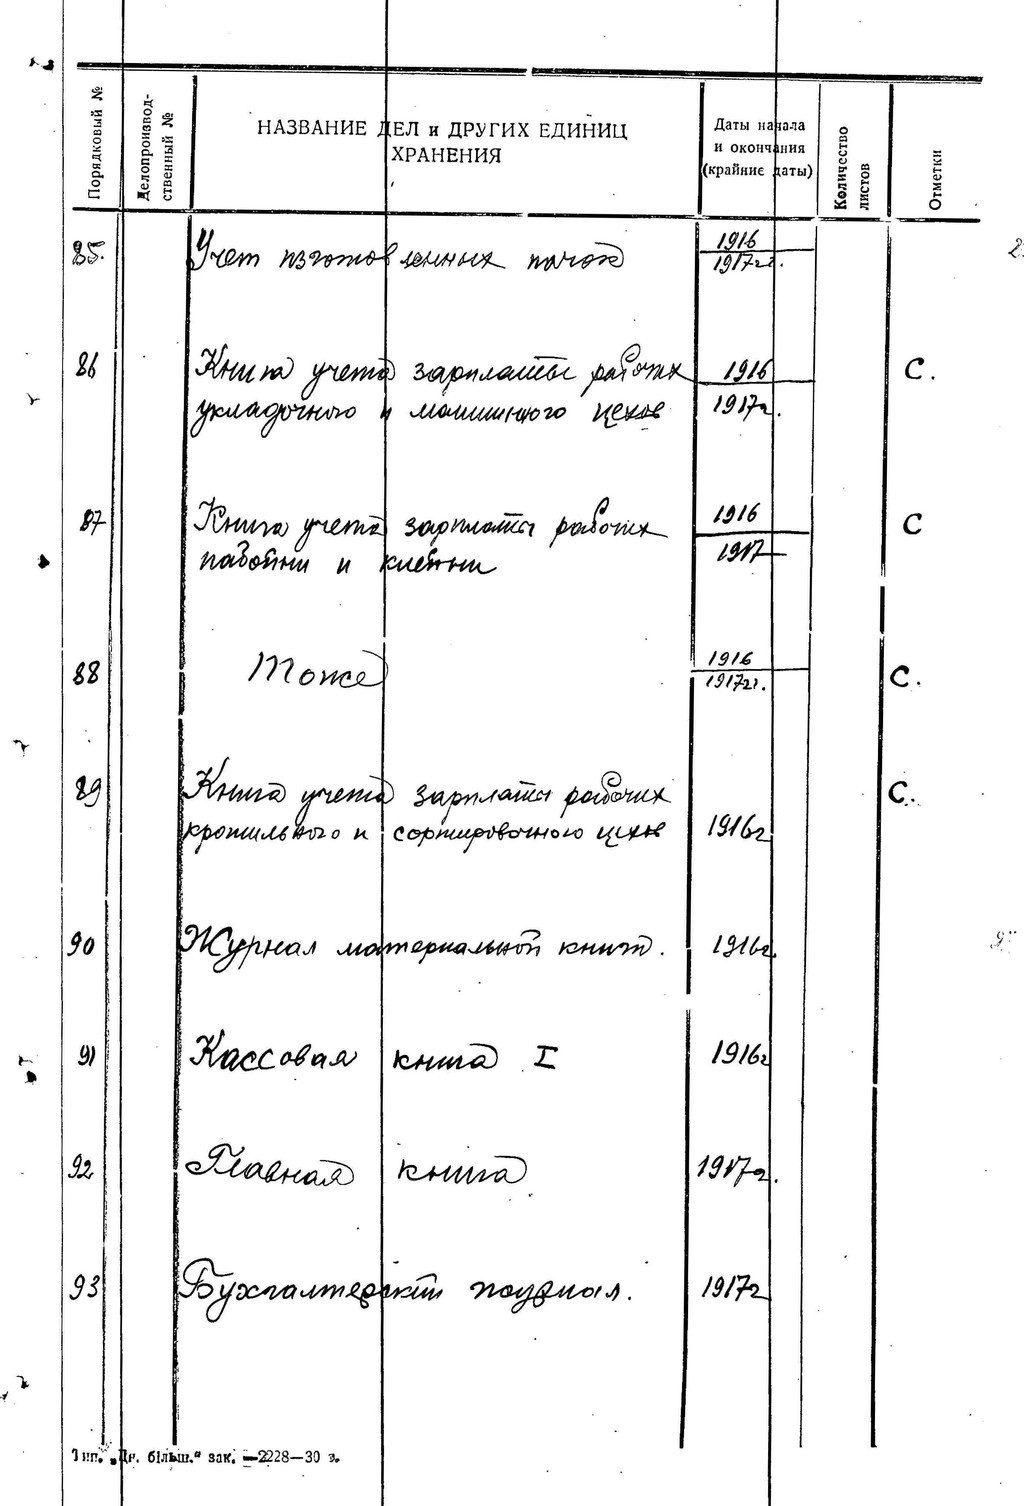 Порядковый №
Делопроизвод-
ственный №
НАЗВАНИЕ ДЕЛ и ДРУГИХ ЕДИНИЦ
ХРАНЕНИЯ
Даты начала
и окончания
(крайние даты)
Количество
листов
Отметки
85. Учет изготовленных пачок 1916
1917гг.
86 Книга учета зарплаты рабочих 1916 С.
укладочного и машинного цехов 1917г.
87 Книга учета зарплаты рабочих 1916 С
набойни и клейни 1917
88 Тоже 1916 С.
1917гг.
89 Книга учета зарплаты рабочих С.
крошильного и сортировочного цехов 1916г
90 Журнал материальной книги. 1916г.
91 Кассовая книга I 1916г
92 Главная книга 1917г.
93 Бухгалтерский журнал. 1917г
Тип. „Дн. більш.“ зак. —2228—30 э.